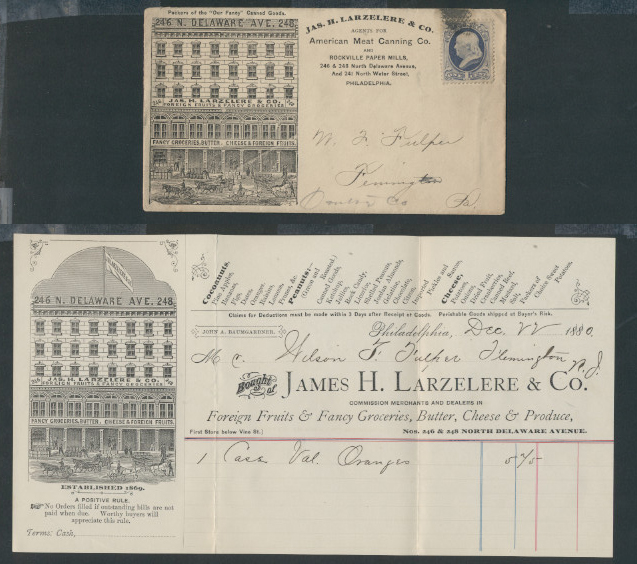 Packers of the "Our Fancy" Canned Goods.
246 N. DELAWARE AVE. 248
JAS. H. LARZELERE & CO.
FOREIGN FRUITS & FANCY GROCERIES.
FANCY GROCERIES, BUTTER, CHEESE & FOREIGN FRUITS.
JAS. H. LARZELERE & CO.
AGENTS FOR
American Meat Canning Co.
AND
ROCKVILLE PAPER MILLS,
246 & 248 North Delaware Avenue,
And 241 North Water Street,
PHILADELPHIA.
W. F. Fulper
Co Pa.
246 N. DELAWARE AVE. 248
JAS. H. LARZELERE & CO.
FOREIGN FRUITS & FANCY GROCERIES.
FANCY GROCERIES, BUTTER, CHEESE & FOREIGN FRUITS.
ESTABLISHED 1869.
A POSITIVE RULE.
No Orders filled if outstanding bills are not
paid when due. Worthy buyers will
appreciate this rule.
Terms: Cash,
Cocoanuts,
Pine Apples,
Figs,
Dates,
Oranges,
Raisins,
Lemons,
Peanuts:—
Canned Goods,
Rock Candy,
Pickles and Sauces,
Cheese,
Potatoes,
Onions,
Dried Fruit,
Cranberries,
Packers of
Choice Sweet
Potatoes.
Claims for Deductions must be made within 3 Days after Receipt of Goods. Perishable Goods shipped at Buyer's Risk.
JOHN A. BAUMGARDNER.
Philadelphia, Dec. 22 1880.
M c. Wilson F. Fulper Flemington N. J.
Bought of JAMES H. LARZELERE & CO.
COMMISSION MERCHANTS AND DEALERS IN
Foreign Fruits & Fancy Groceries, Butter, Cheese & Produce,
First Store below Vine St.) Nos. 246 & 248 NORTH DELAWARE AVENUE.
1 Case Val. Oranges